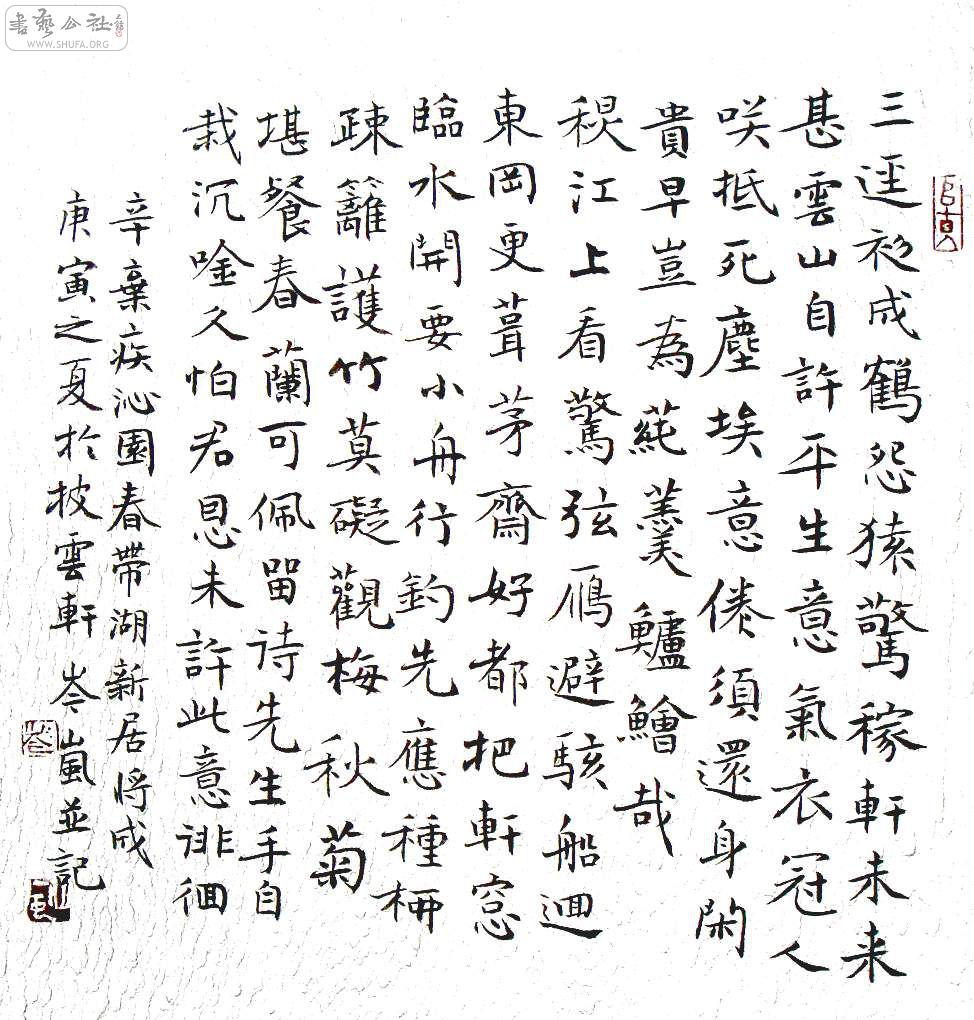 三逕初成鶴怨猿驚稼軒未来
甚雲山自許平生意氣衣冠人
咲抵死塵埃意倦須還身閑
貴早豈為蒓羹鱸鱠哉
江上看驚弦鴈避駭船迴
東岡更葺茅齋好都把軒窓
臨水開要小舟行釣先應種柳
疎籬護竹莫礙觀梅秋菊
堪餐春蘭可佩留诗先生手自
栽沉唫久怕君恩未許此意徘徊
辛棄疾沁園春帶湖新居將成
庚寅之夏於披雲軒岑嵐並記
書藝公社
WWW.SHUFA.ORG